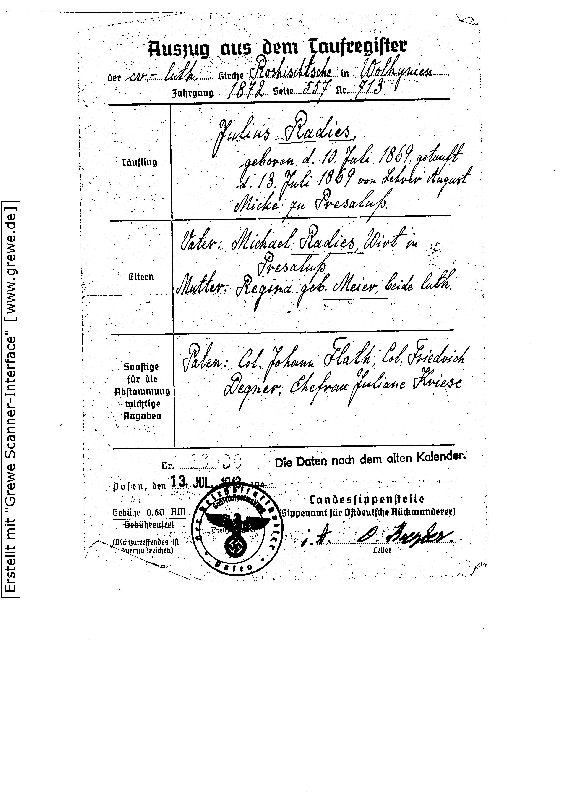 Auszug aus dem Taufregister
der ev.- luth Kirche Roshischtsche in Wolhynien
Jahrgang 1872 Seite 557 Nr. 713
Täufling
Julius Radies,
geboren d. 13. Juli 1869, getauft
d. 13. Juli 1869 von Lehrer August
Micke zu Presaluß.
Eltern
Vater: Michael Radies, Wirt in
Presaluß
Mutter: Regina geb. Meier, beide luth.
Sonstige
für die
Abstammung
wichtige
Angaben
Paten: Col. Johann Flath, Col. Friedrich
Degner, Ehefrau Juliane Kriese
Die Daten nach dem alten Kalender.
Posen, den 13. JUL.
Gebühr 0.60 RM
Gebührenfrei
(Nichtzutreffendes ist
Landessippenstelle
(Sippenamt für Ostdeutsche Rückwanderer)
i. A.
Leiter
Der Reichsstatthalter
Posen
Erstellt mit "Grewe Scanner-Interface" [www.grewe.de]